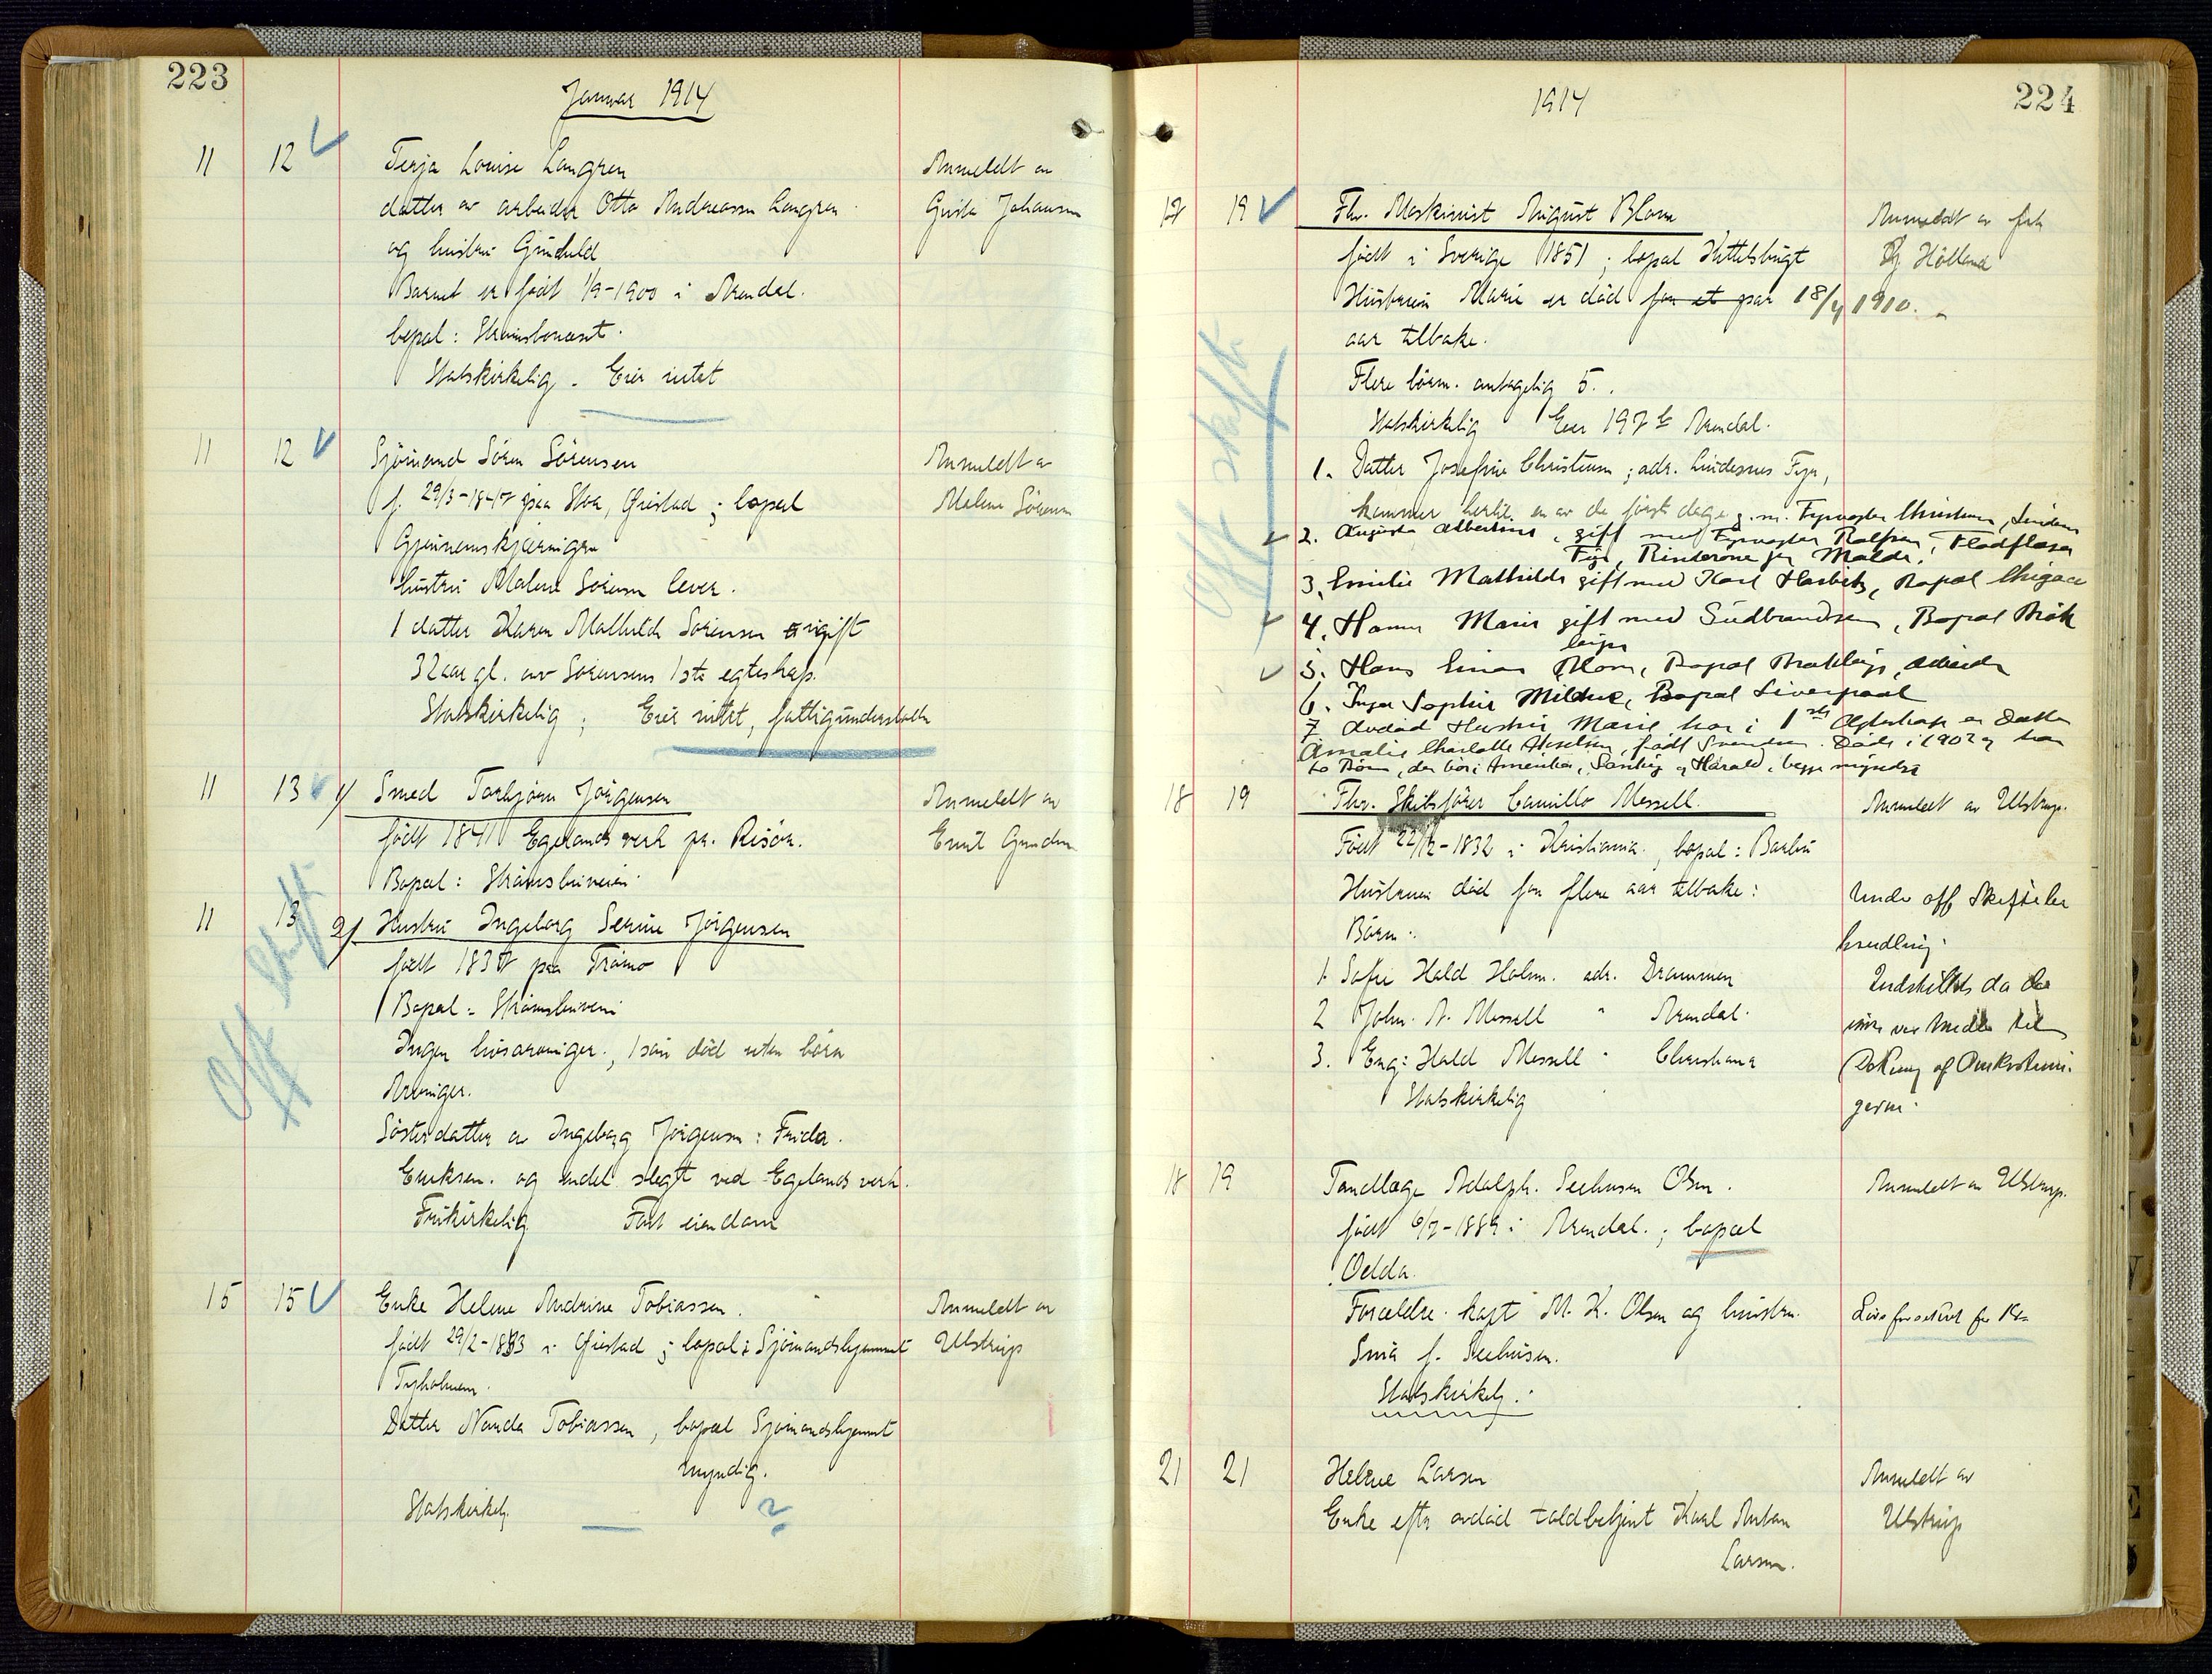 223
Januar 1914
11 12 Terja Louise Langren
datter av arbeider Otto Andreassen Langren
og hustru Gunhild
Barnet er født 1/9-1900 i Arendal.
bopæl: Strømsbonæst.
Statskirkelig. Eier intet
Anmeldt av
Gusta Johansen
11 12 Sjømand Søren Sørensen
f. 29/3-1847 paa Stoa, Øiestad ; bopæl
Gjennemskjæringen
hustru Malene Sørensen lever.
1 datter Karen Mathilde Sørensen ugift
32 aar gl. av Sørensens 1ste egteskap.
Statskirkelig ; Eier intet, fattigunderstøttet
Anmeldt av
Malene Sørensen
11 13 1/ Smed Torbjørn Jørgensen
født 1841 Egelands verk pr. Risør.
Bopæl: Strømsbuveien
11 13 2/ Hustru Ingeborg Serine Jørgensen
født 1837 paa Tromø
Bopæl = Strømsbuveien
Ingen livsarvinger, 1 søn død uten børn
Arvinger.
Søsterdatter av Ingeborg Jørgensen: Frida
Eriksen. og endel slegt ved Egelands verk.
Frikirkelig Fast eiendom
Anmeldt av
Emil Gundersen
Off skifte
15 15 Enke Helene Andrine Tobiassen.
født 29/2-1833 i Øiestad ; bopæl: Sjømandshjemmet
Tyholmen.
Datter Nanda Tobiassen, bopæl Sjømandshjemmet
myndig.
Statskirkelig. ?
Anmeldt av
Ulstrup
224
1914
17 19 Fhv. Maskinist August Blom
født i Sverige 1851 ; bopæl Kittelsbugt
Hustruen Marie er død for et par 18/4 1910.
aar tilbake.
Flere børn. antagelig 5.
Statskirkelig Eier 197 b Arendal.
Anmeldt av frk
Hølland
Off skifte
1. Datter Josefine Christensen ; adr. Lindesnes Fyr,
kommer hertil en av de første dage g. m. Fyrvogter Christensen, Lindesnes
2. Augusta Albertine, gift med Fyrvogter Rolfsen, Fladflesa
Fyr, Rinderone pr Molde.
3. Emilie Mathilde gift med Karl Hasbet, Bopæl Chigaco
4. Hanna Marie gift med Gudbrandsen, Bopæl Bråk
leigs
5. Hans Einar Blom, Bopæl Brækleigs, arbeider
6. Inga Sophie Milthue, Bopæl Liverpool
7 Avdød Hustru Marie har i 1ste Ægteskap en Datter
Amalie Charlotte Akselsen, født Svendsen. Døde i 1902 og har
to Børn, der bor i Amerika, og Harald, begge myndige
18 19 Fhv. Skibsfører Camillo Messell.
Født 22/12-1832 i Kristiania, bopæl: Barbu
Hustruen død for flere aar tilbake:
Børn:
1. Sofie Hald Holm. adr. Drammen
2 John. A. Messell " Arendal.
3. Eng: Hald Messell " Christiania
Statskirkelig
Anmeldt av Ulstrup.
Under off Skiftebe
handling.
Indstilles da der
ikke var Midler til
Dekning af Omkostnin-
gerne.
18 19 Tandlæge Adolph. Seehusen Olsen.
født 6/7-1889 i Arendal. ; bopæl
Odda.
Forældre. kapt M. K. Olsen og hustru.
Smia f. Seehusen.
Statskirkelig.
Anmeldt av Ulstrup.
Livsforsikret for Kr
21 21 Helene Larsen
Enke efter avdød toldbetjent Karl Anton
Larsen.
Anmeldt av
Ulstrup